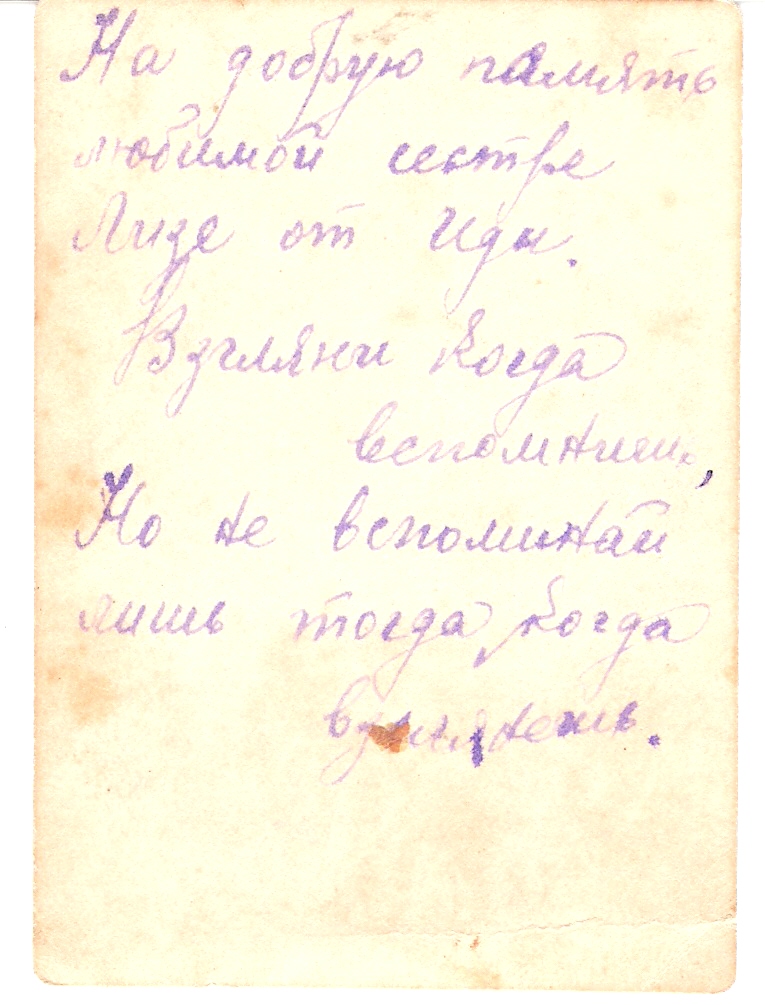 На добрую память
любимой сестре
Лизе от Иды.
Взгляни когда
вспомнишь,
Но не вспоминай
лишь тогда, когда
взглянешь.